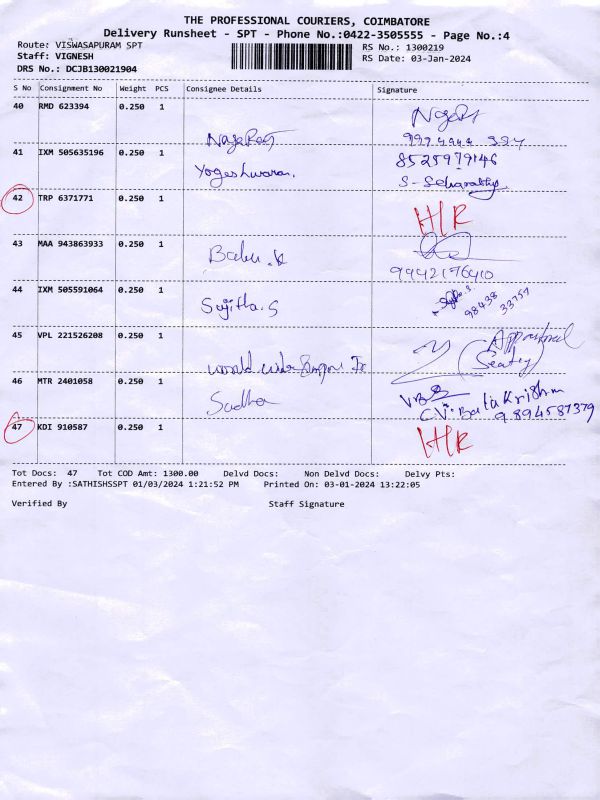 THE PROFESSIONAL COURIERS, COIMBATORE
Delivery Runsheet - SPT - Phone No.:0422-3505555 - Page No.:4
Route: VISWASAPURAM SPT
RS No.: 1300219
Staff: VIGNESH
RS Date: 03-Jan-2024
DRS No.: DCJB130021904
S No Consignment No Weight PCS Consignee Details Signature
40 RMD 623394 0.250 1
41 IXM 505635196 0.250 1 Yogeshwaran. 8525979146
42 TRP 6371771 0.250 1 H/R
43 MAA 943863933 0.250 1 Babu.k
9942176410
44 IXM 505591064 0.250 1 Sujitha.S 98438 33757
45 VPL 221526208 0.250 1
46 MTR 2401058 0.250 1 Sudha
C.V. Bala Krishn
9894587379
47 KDI 910587 0.250 1 H/R
Tot Docs: 47 Tot COD Amt: 1300.00 Delvd Docs: Non Delvd Docs: Delvy Pts:
Entered By :SATHISHSSPT 01/03/2024 1:21:52 PM Printed On: 03-01-2024 13:22:05
Verified By Staff Signature